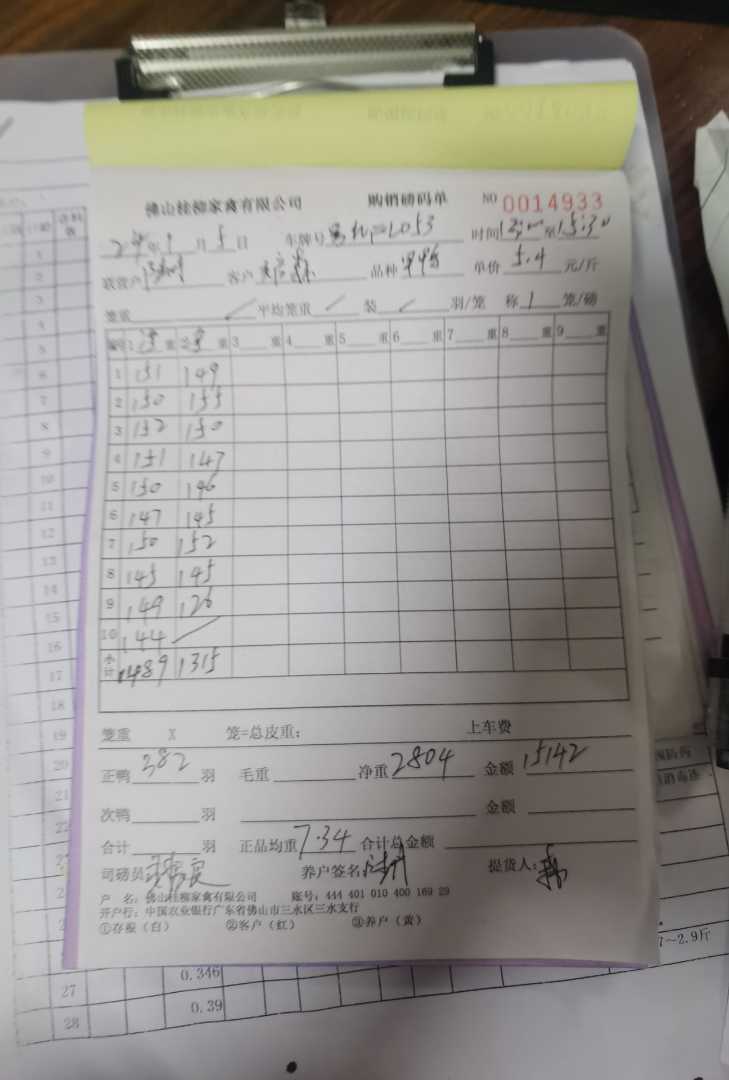 佛山桂柳家禽有限公司 购销磅码单 NO 0014933
年 月 5 日 车牌号 2053 时间 13:00 至 15:30
客户 品种 单价 5.4 元/斤
笼重 平均笼重 装 羽/笼 称 1 笼/磅
编号 1 重 2 重 3 重 4 重 5 重 6 重 7 重 8 重 9 重
1 151 149
2 150 155
3 152 150
4 151 147
5 150 146
6 147 145
7 150 152
8 145 145
9 149 126
10 144
小计 1489 1315
笼重 X 笼=总皮重: 上车费
正鸭 382 羽 毛重 净重 2804 金额 15142
次鸭 羽 金额
合计 羽 正品均重 7.34 合计总金额
司磅员 养户签名: 提货人:
户 名: 佛山桂柳家禽有限公司 账号: 444 401 010 400 169 29
开户行: 中国农业银行广东省佛山市三水区三水支行
①存根(白) ②客户(红) ③养户(黄)
1
2
3
4
5
6
7
8
9
10
11
12
13
14
15
16
17
18
19
20
21
22
27 0.346
28 0.39
7~2.9斤